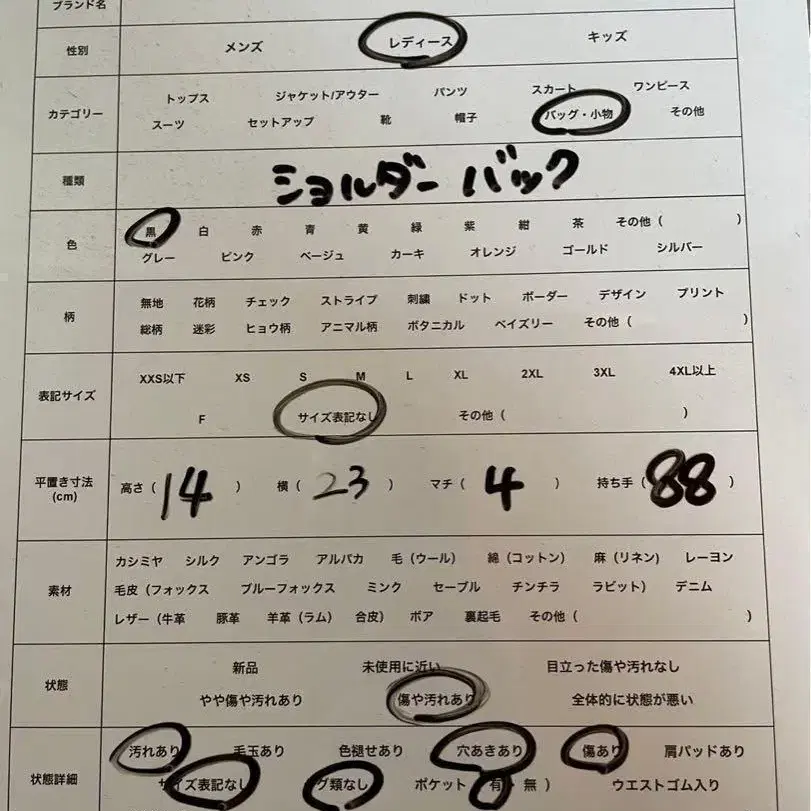 ブランド名
性別 メンズ レディース キッズ
カテゴリー トップス ジャケット/アウター パンツ スカート ワンピース
スーツ セットアップ 靴 帽子 バッグ・小物 その他
種類 ショルダー バック
色 黒 白 赤 青 黄 緑 紫 紺 茶 その他( )
グレー ピンク ベージュ カーキ オレンジ ゴールド シルバー
柄 無地 花柄 チェック ストライプ 刺繍 ドット ボーダー デザイン プリント
総柄 迷彩 ヒョウ柄 アニマル柄 ボタニカル ペイズリー その他( )
表記サイズ XXS以下 XS S M L XL 2XL 3XL 4XL以上
F サイズ表記なし その他( )
平置き寸法 (cm) 高さ( 14 ) 横( 23 ) マチ( 4 ) 持ち手( 88 )
素材 カシミヤ シルク アンゴラ アルパカ 毛(ウール) 綿(コットン) 麻(リネン) レーヨン
毛皮(フォックス ブルーフォックス ミンク セーブル チンチラ ラビット) デニム
レザー(牛革 豚革 羊革(ラム) 合皮) ボア 裏起毛 その他( )
状態 新品 未使用に近い 目立った傷や汚れなし
やや傷や汚れあり 傷や汚れあり 全体的に状態が悪い
状態詳細 汚れあり 毛玉あり 色褪せあり 穴あきあり 傷あり 肩パッドあり
サイズ表記なし グ類なし ポケット 有 無 ) ウエストゴム入り